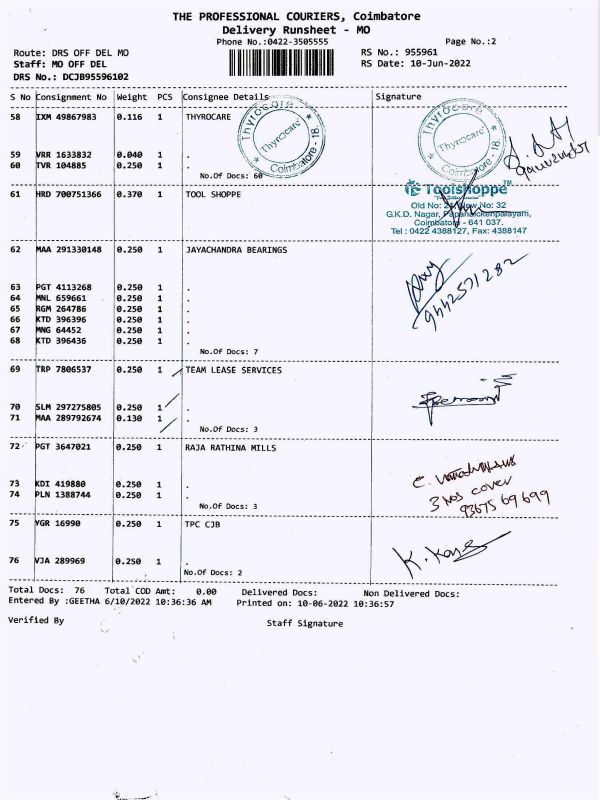 THE PROFESSIONAL COURIERS, Coimbatore
Delivery Runsheet - MO
Phone No.:0422-3505555
Page No.:2
Route: DRS OFF DEL MO
RS No.: 955961
Staff: MO OFF DEL
RS Date: 10-Jun-2022
DRS No.: DCJB95596102
S No Consignment No Weight PCS Consignee Details Signature
58 IXM 49867983 0.116 1 THYROCARE
Thyrocare
Thyrocare
Coimbatore - 18.
Thyrocare
Thyrocare
Coimbatore - 18.
59 VRR 1633832 0.040 1 .
60 TVR 104885 0.250 1 .
No.Of Docs: 60
61 HRD 700751366 0.370 1 TOOL SHOPPE
Toolshoppe TM
Old No: 21 New No: 32
G.K.D. Nagar, Papanaickenpalayam,
Coimbatore - 641 037.
Tel : 0422 4388127, Fax: 4388147
62 MAA 291330148 0.250 1 JAYACHANDRA BEARINGS
9442571282
63 PGT 4113268 0.250 1 .
64 MNL 659661 0.250 1 .
65 RGM 264786 0.250 1 .
66 KTD 396396 0.250 1 .
67 MNG 64452 0.250 1 .
68 KTD 396436 0.250 1 .
No.Of Docs: 7
69 TRP 7806537 0.250 1 TEAM LEASE SERVICES
70 SLM 297275805 0.250 1 .
71 MAA 289792674 0.130 1 .
No.Of Docs: 3
72 PGT 3647021 0.250 1 RAJA RATHINA MILLS
73 KDI 419880 0.250 1 .
74 PLN 1388744 0.250 1 .
No.Of Docs: 3
3 nos cover
93675 69699
75 YGR 16990 0.250 1 TPC CJB
76 VJA 289969 0.250 1 .
No.Of Docs: 2
Total Docs: 76 Total COD Amt: 0.00 Delivered Docs: Non Delivered Docs:
Entered By :GEETHA 6/10/2022 10:36:36 AM Printed on: 10-06-2022 10:36:57
Verified By
Staff Signature